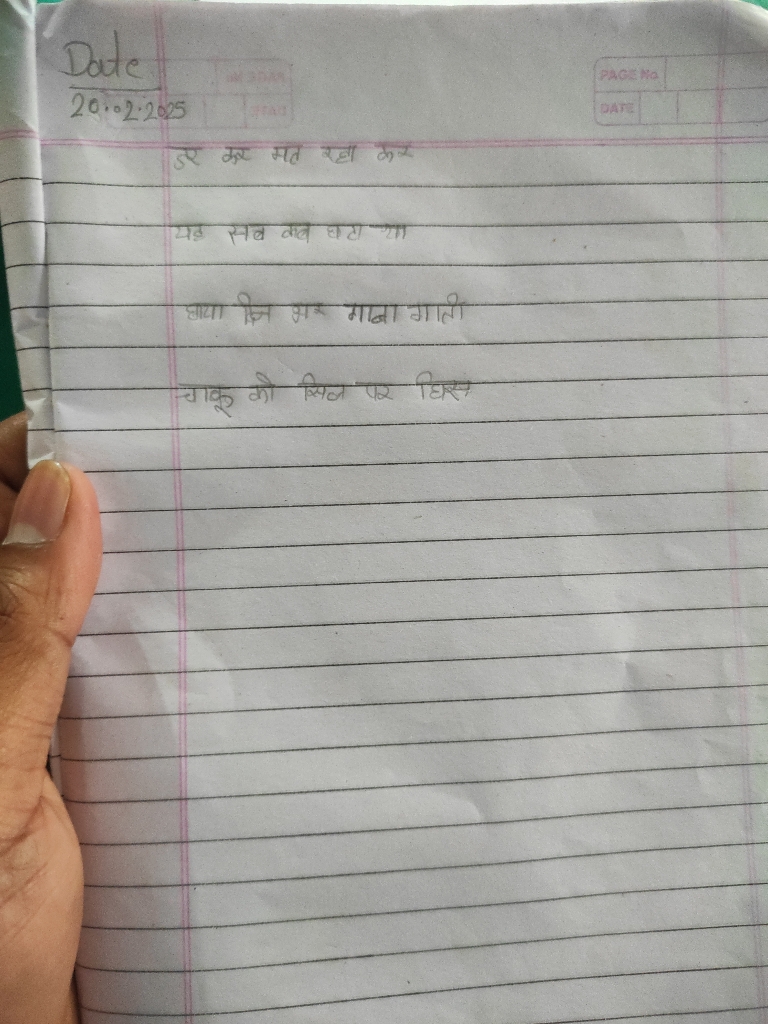 Date
20.02.2025
PAGE No.
DATE
डर कर मत रहा कर
यह सब कब घटा था
छाया दिन भर गाना गाती
चाकू को सिल पर घिस